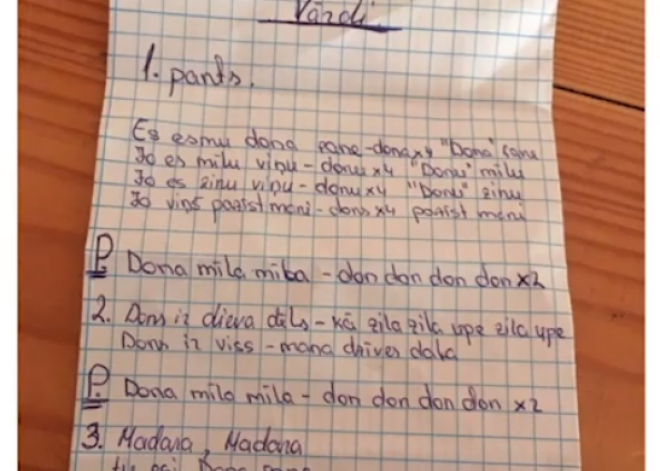 Vārdi.
1. pants.
Es esmu dona rane-dona x4 "Dona" rane
Jo es mīlu viņu - donu x4 "Donu" mīlu
Jo es zinu viņu - donu x4 "Donu" zinu
Jo viņš pazīst mani - dons x4 pazīst mani
P. Dona mīla mība - don don don don x2
2. Dons ir dieva dēls - kā zila zila upe zila upe
Dons ir viss - mana dvives daļa
P. Dona mīla mīla - don don don don don x2
3. Madara, Madara